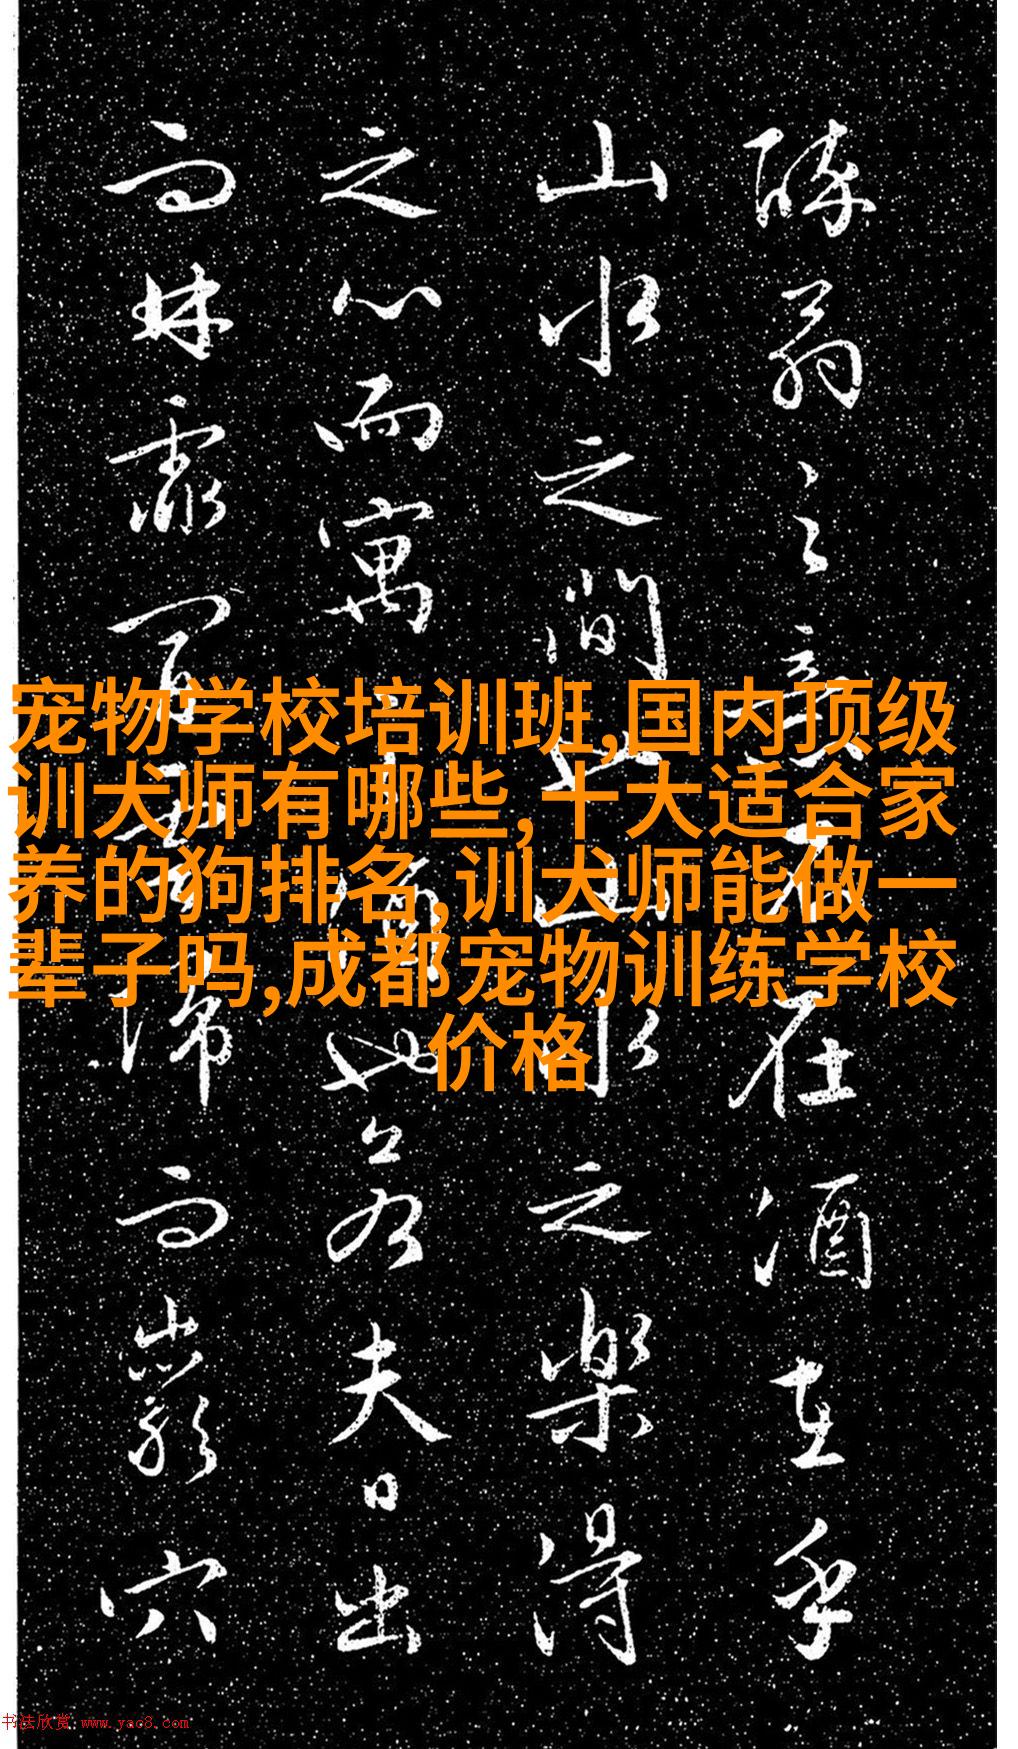 醉翁之意不在酒在乎
山水之間也山水之樂得
之心而寓之酒也若夫日出
而林霏開雲歸而巖穴
宠物学校培训班,国内顶级
训犬师有哪些,十大适合家
养的狗排名,训犬师能做一
辈子吗,成都宠物训练学校
价格
书法欣赏 www.yac8.com